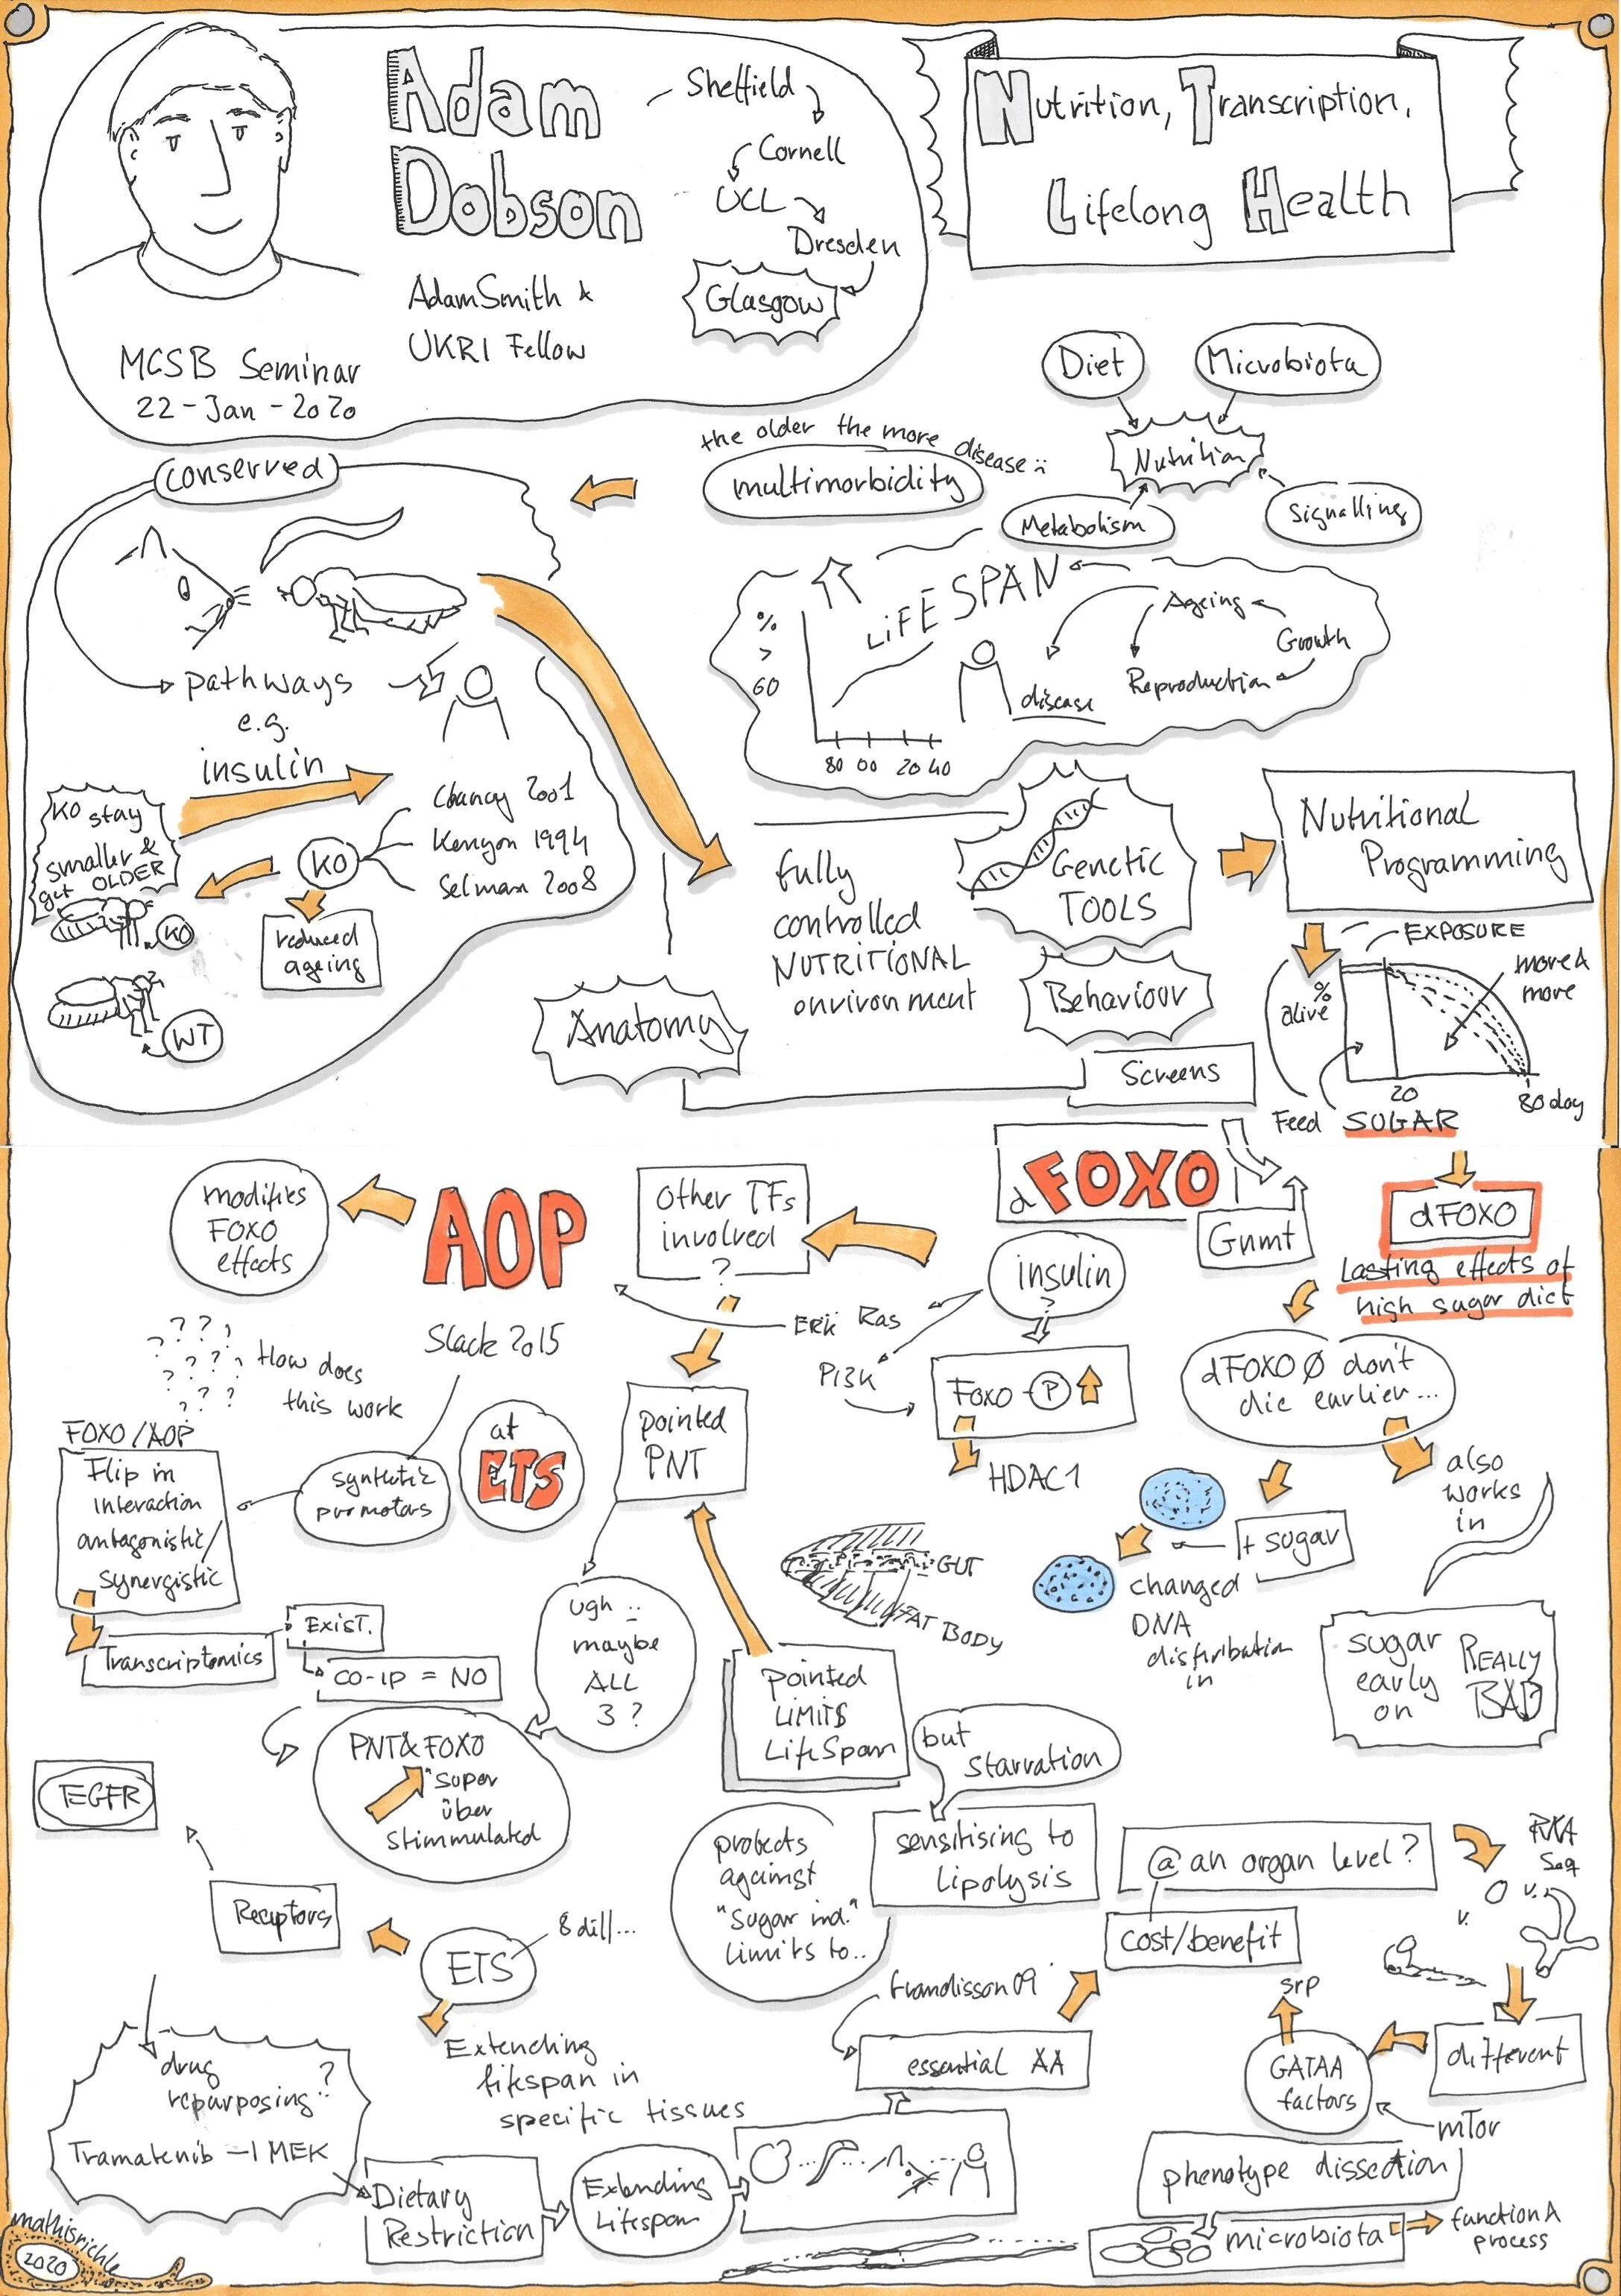 Adam
Dobson
Adam Smith &
UKRI Fellow
MCSB Seminar
22-Jan-2020
Sheffield
Cornell
UCL
Dresden
Glasgow
Nutrition, Transcription,
Lifelong Health
Diet
Microbiota
Nutrition
Metabolism
Signalling
the older the more disease
multimorbidity
LIFESPAN
%
>
60
80 00 20 40
Ageing
Growth
Reproduction
disease
conserved
pathways
e.g.
insulin
KO stay
smaller &
get OLDER
KO
WT
KO
Clancy 2001
Kenyon 1994
Selman 2008
reduced
ageing
fully
controlled
NUTRITIONAL
environment
Genetic
TOOLS
Behaviour
Anatomy
Screens
Nutritional
Programming
EXPOSURE
more &
more
%
alive
20
80 day
Feed SUGAR
dFOXO
Lasting effects of
high sugar diet
dFOXO
Gnmt
insulin
?
Foxo-P
HDAC1
Erk Ras
PI3K
dFOXO Ø don't
die earlier...
also
works
in
+ sugar
changed
DNA
distribution
in
sugar
early
on
REALLY
BAD
Other TFs
involved
?
AOP
Slack 2015
modifies
FOXO
effects
???
???
???
How does
this work
FOXO/AOP
Flip in
interaction
antagonistic/
synergistic
synthetic
promotors
at
ETS
pointed
PNT
GUT
FAT BODY
Transcriptomics
Exist.
co-ip = NO
ugh
maybe
ALL
3?
PNT & FOXO
"super
über
stimmulated
pointed
LIMITS
LifeSpan
but
starvation
sensitising to
lipolysis
protects
against
"sugar ind."
limits to..
@ an organ level?
cost/benefit
RNA
Seq
v.
v.
different
GATAA
factors
srp
mTor
EGFR
Receptors
ETS
8 diff...
Extending
lifespan in
specific tissues
drug
repurposing?
Tramatenib ⊣ MEK
Dietary
Restriction
Extending
Lifespan
essential AA
phenotype dissection
microbiota
function &
process
mathisrichle
2020